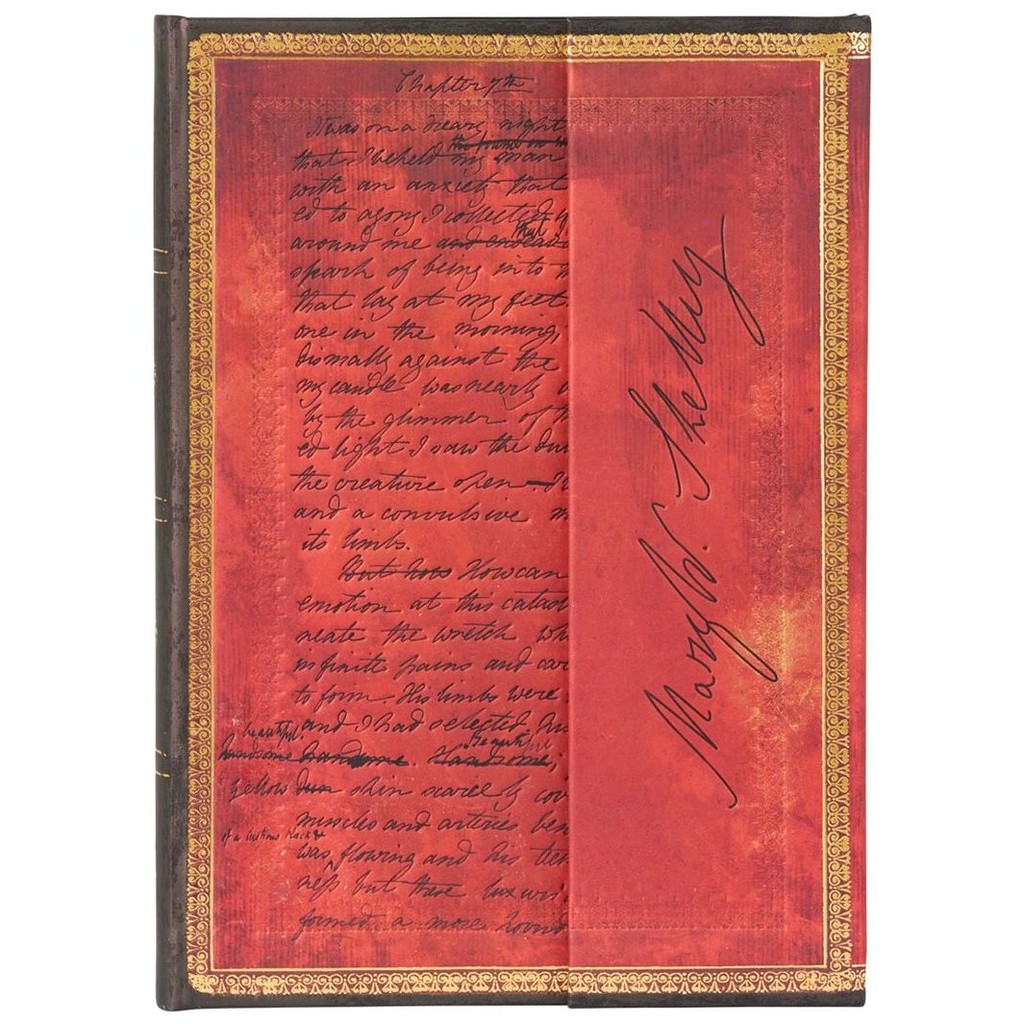 Chapter 7th
It was on a dreary night
that I beheld my man
the frame on w
with an anxiety that
ed to agony I collected
around me and endeav
that
spark of being into
that lay at my feet.
one in the morning,
dismally against the
my candle was nearly
by the glimmer of
ed light I saw the du
the creature open—I
and a convulsive m
its limbs.
But how How can
emotion at this catas
neate the wretch wh
infinite pains and car
to form. His limbs were
and I had selected his
beautiful.
beautiful
handsome handsome. Handsome;
yellow dun skin scarcely cov
muscles and arteries ben
of a lustrous black &
was flowing and his tee
ness but these luxuri
formed a more horrid
Mary W. Shelley